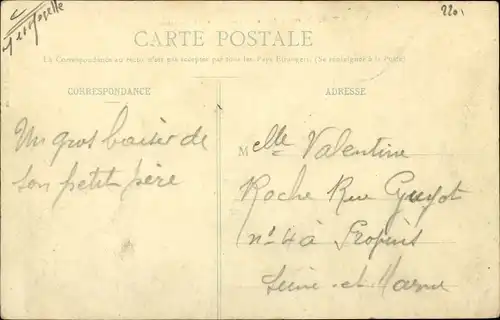 2201
CARTE POSTALE
La Correspondance au recto n'est pas acceptée par tous les Pays Etrangers. (Se renseigner à la Poste)
CORRESPONDANCE
ADRESSE
Un gros baiser de
son petit père
Melle Valentine
Roche Rue Guyot
n° 4 à Provins
Seine-et-Marne